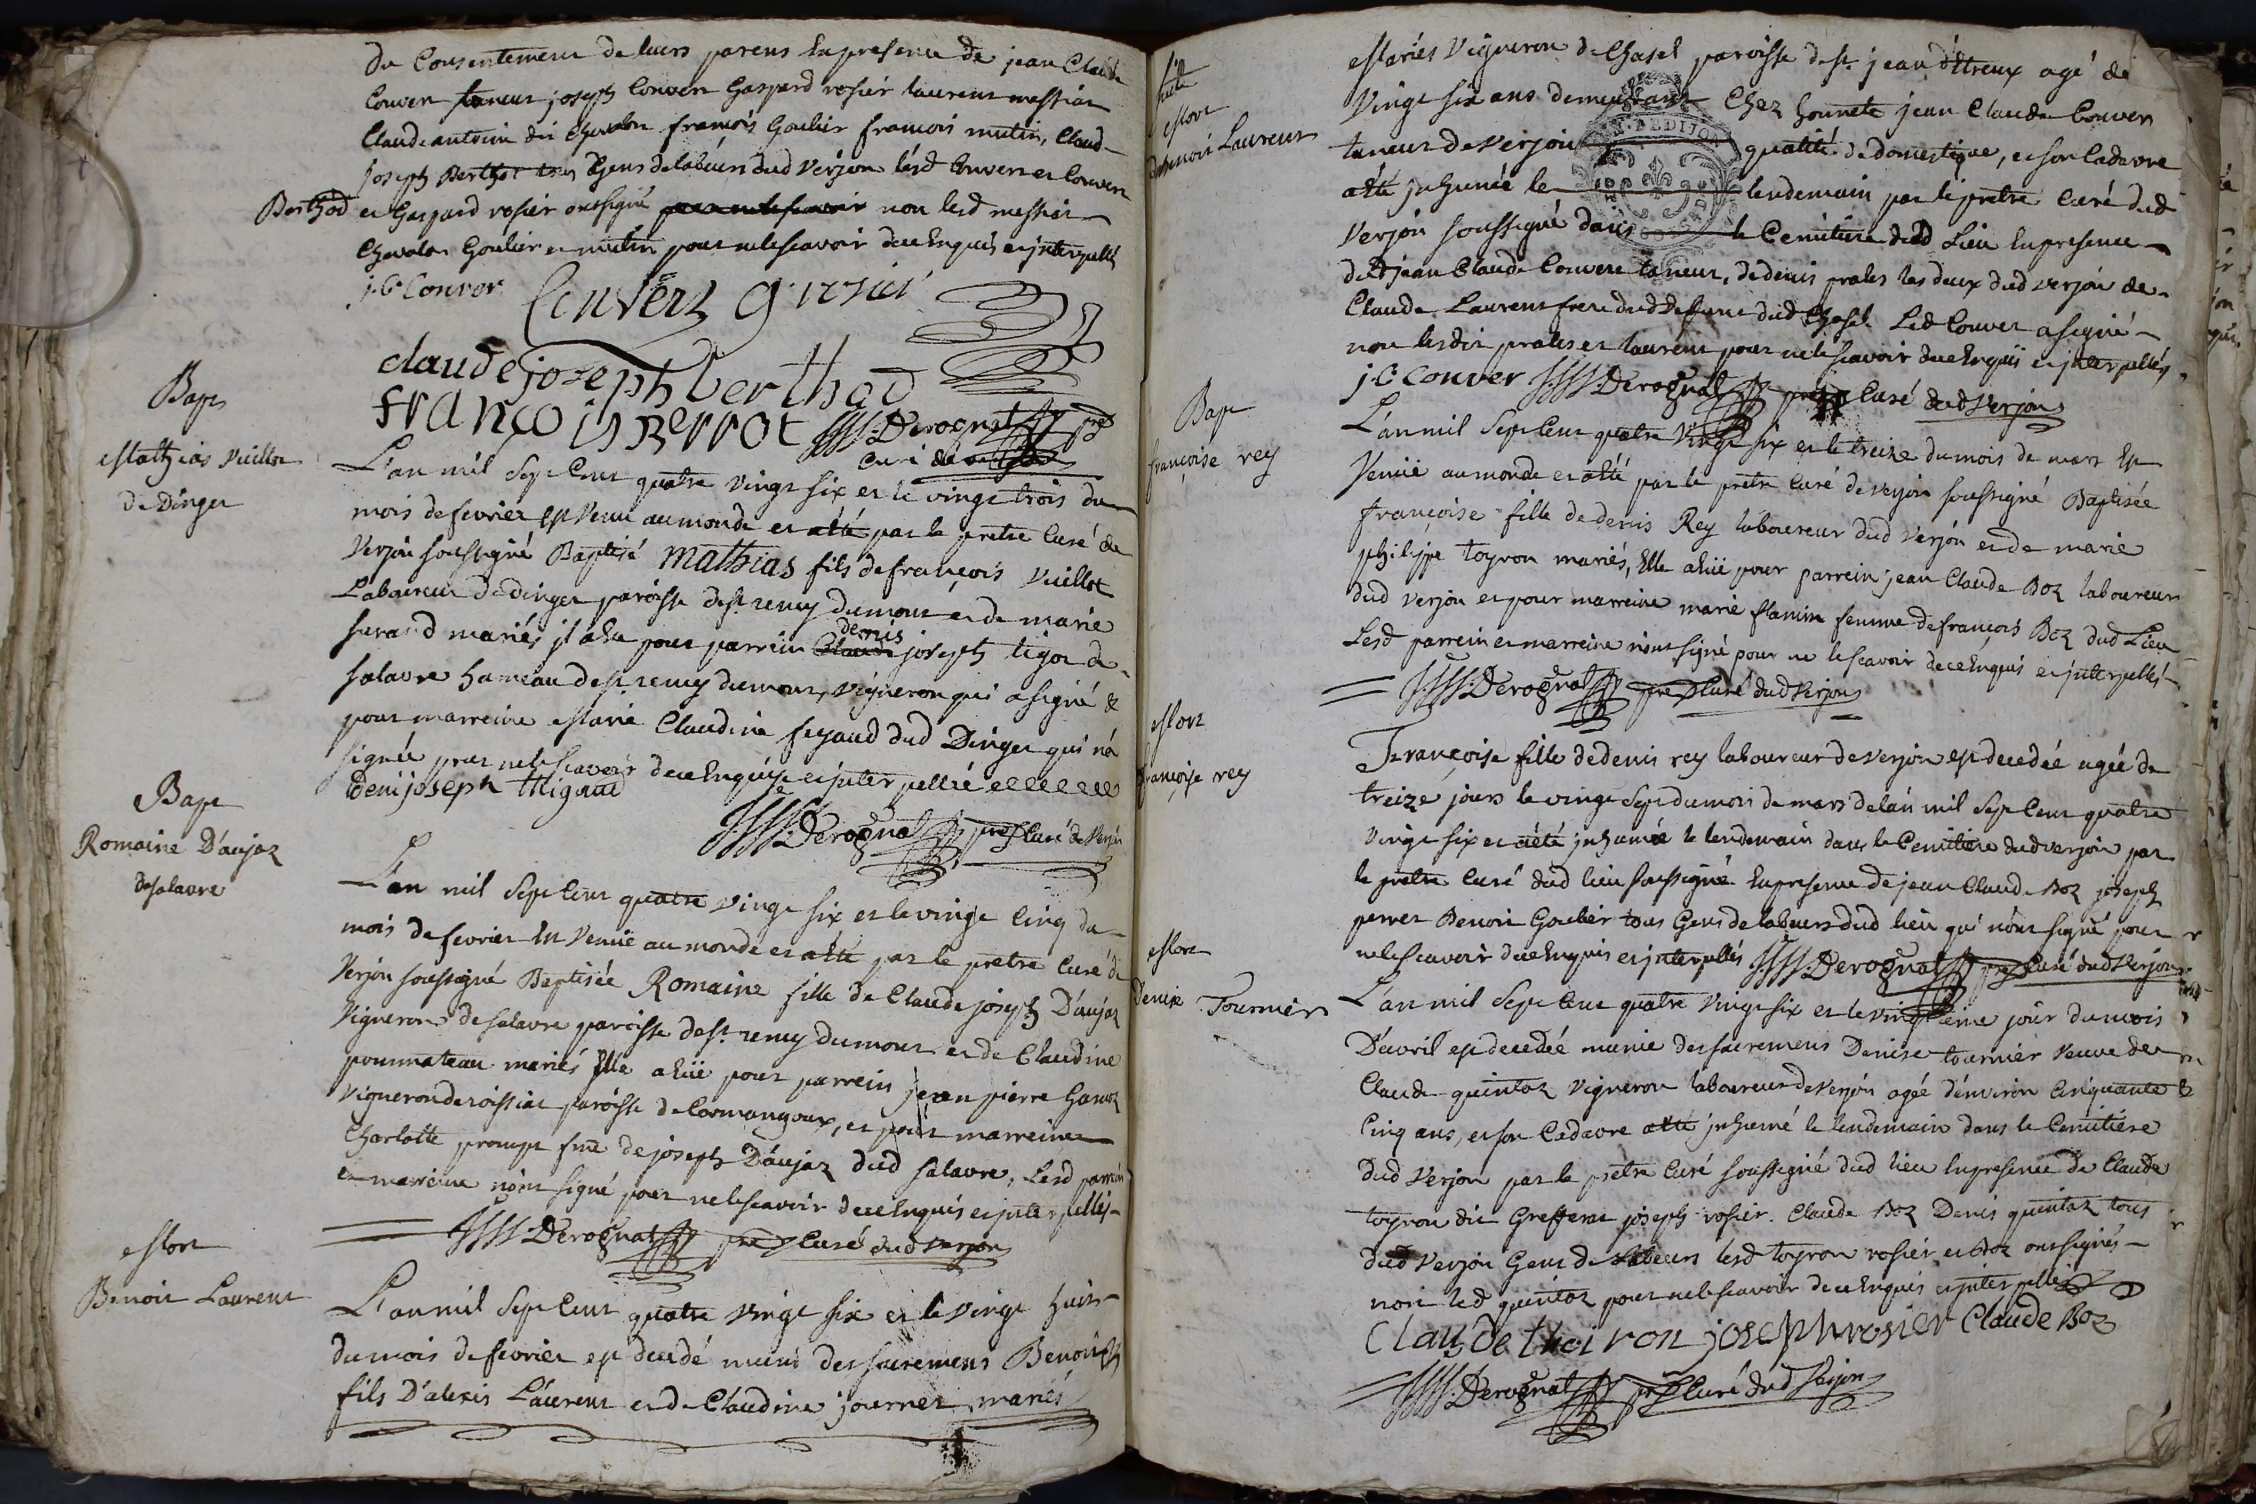 du Consentement de leurs parens En presence de jean Claude
Conver taneur joseph Convers Gaspard rosier laurent messiat
Claude antoine dit Chevalon francois Goulier francois mutin, Claude
joseph Berthot tous Gens de labeurs dud Verjon lesd Convers et Conver
Berthod et Gaspard rosier ont signé non lesd messiat
Chevalon Goulier et mutin pour ne le scavoir de ce Enquis et jnterpellés
j-C Conver Convers g rosier
claude joseph berthod
francois Berrot Derognat ptre
curé de
Bapt
Mathias Vuillot
de Dinger
L'an mil Sept Cent quatre vingt six et le vingt trois du
mois de fevrier est Venu au monde et a été par le pretre Curé de
Verjon soussigné Baptisé Mathias fils de francois Vuillot
Laboureur de dinger paroisse de st remy dumont et de marie
mariés jl a Eu pour parrein Claude denis joseph tigot de
salavre hameau de st remy dumont, vigneron qui a signé &
pour marreine Marie Claudine feyaud dud Dinger qui n'a
signée pour ne le scavoir de ce Enquise et jnterpellée
Deni joseph thigaud
Derognat ptre Curé de Verjon
Bapt
Romaine D'aujaz
de salavre
L'an mil Sept Cent quatre vingt six et le vingt Cinq du
mois de fevrier Est Venuë au monde et a été par le pretre Curé de
Verjon soussigné Baptisée Romaine fille de Claude joseph D'aujaz
Vigneron de salavre paroisse de st remy dumont et de Claudine
pommateau mariés Elle a Euë pour parrein jean pierre
vigneron de roissiat paroisse de Cormangoux, et pour marreine
Charlotte prompt fme de joseph D'aujaz dud salavre, Lesd parrein
et marreine n'ont signé pour ne le scavoir de ce Enquis et jnterpellés
Derognat ptre Curé dud Verjon
Mort
Benoit Laurent
L'an mil Sept Cent quatre vingt six et le Vingt huit
du mois de fevrier est decedé muni des sacremens Benoit
fils D'alexis Laurent et de Claudine journet mariés
Mort
Benoit Laurent
Mariés Vigneron de Chasel paroisse de st jean d'Etreux agé de
Vingt six ans demeurant Chez honnete jean Claude Conver
taneur de Verjon qualité de domestique, et son Cadavre
a été jnhumée le lendemain par le pretre Curé dud
Verjon soussigné dans le Cemitiere dud Lieu En presence
dud jean Claude Convers taneur, de denis prales les deux dud verjon de
Claude Laurent frere dud deffunt dud Chasel Led Conver a signé
non lesdit prales et laurent pour ne le scavoir de ce Enquis et jnterpellés
j-C Conver Derognat ptre Curé dud Verjon
Bapt
françoise rey
L'an mil Sept Cent quatre Vingt six et le treize du mois de mars Est
Venuë au monde et a été par le pretre Curé de verjon soussigné Baptisée
françoise fille de denis Rey laboureur dud Verjon et de marie
philippe toyron mariés, Elle a Euë pour parrein jean Claude Boz laboureur
dud verjon et pour marreine marie flamin femme de francois Boz dud Lieu
Lesd parrein et marreine n'ont signé pour ne le scavoir de ce Enquis et jnterpellés
Derognat ptre Curé dud Verjon
Mort
françoise rey
Françoise fille de denis rey laboureur de verjon est decedée agée de
treize jours le vingt sept du mois de mars de l'an mil Sept Cent quatre
vingt six et a été jnhumée le lendemain dans le Cemitiere dud verjon par
le pretre Curé dud lieu soussigné En presence de jean Claude Boz joseph
perret Benoit Goulier tous Gens de labeurs dud lieu qui n'ont signé pour
ne le scavoir de ce Enquis et jnterpellés Derognat ptre Curé dud Verjon
Mort
Denise Tournier
L'an mil Sept Cent quatre Vingt six et le vingtieme jour du mois
D'avril est decedée munie des sacremens Denise tournier Veuve de
Claude quintaz Vigneron laboureur de Verjon agée d'environ Cinquante
Cinq ans, et son Cadavre a été jnhumé le lendemain dans le Cemitiere
dud Verjon par le pretre Curé soussigné dud lieu En presence de Claude
toyron dit Grefferat joseph rosier Claude Boz Denis quintaz tous
dud Verjon Gens de labeurs lesd toyron rosier et Boz ont signés
non led quintaz pour ne le scavoir de ce Enquis et jnterpellé
Claude thoiron joseph rosier Claude Boz
Derognat ptre Curé dud Verjon